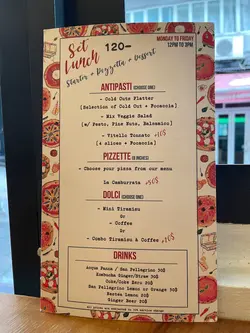 Set Lunch 120-
MONDAY TO FRIDAY
12PM TO 3PM
Starter + Pizzetta + Dessert
ANTIPASTI (CHOOSE ONE)
- Cold Cuts Platter
[Selection of Cold Cut + Foccacia]
- Mix Veggie Salad
[w/ Pesto, Pine Nuts, Balsamico]
- Vitello Tonnato +10$
[4 slices + Foccacia]
PIZZETTE (9 INCHES)
- Choose your pizza from our menu
La Camburrata +30$
DOLCI (CHOOSE ONE)
- Mini Tiramisu
Or
- Coffee
Or
- Combo Tiramisu & Coffee +20$
DRINKS
Acqua Panna / San Pellegrino 30$
Kombucha Ginger/Straw 30$
Coke/Coke Zero 30$
San Pellegrino Lemon or Orange 30$
Ginger Beer 30$